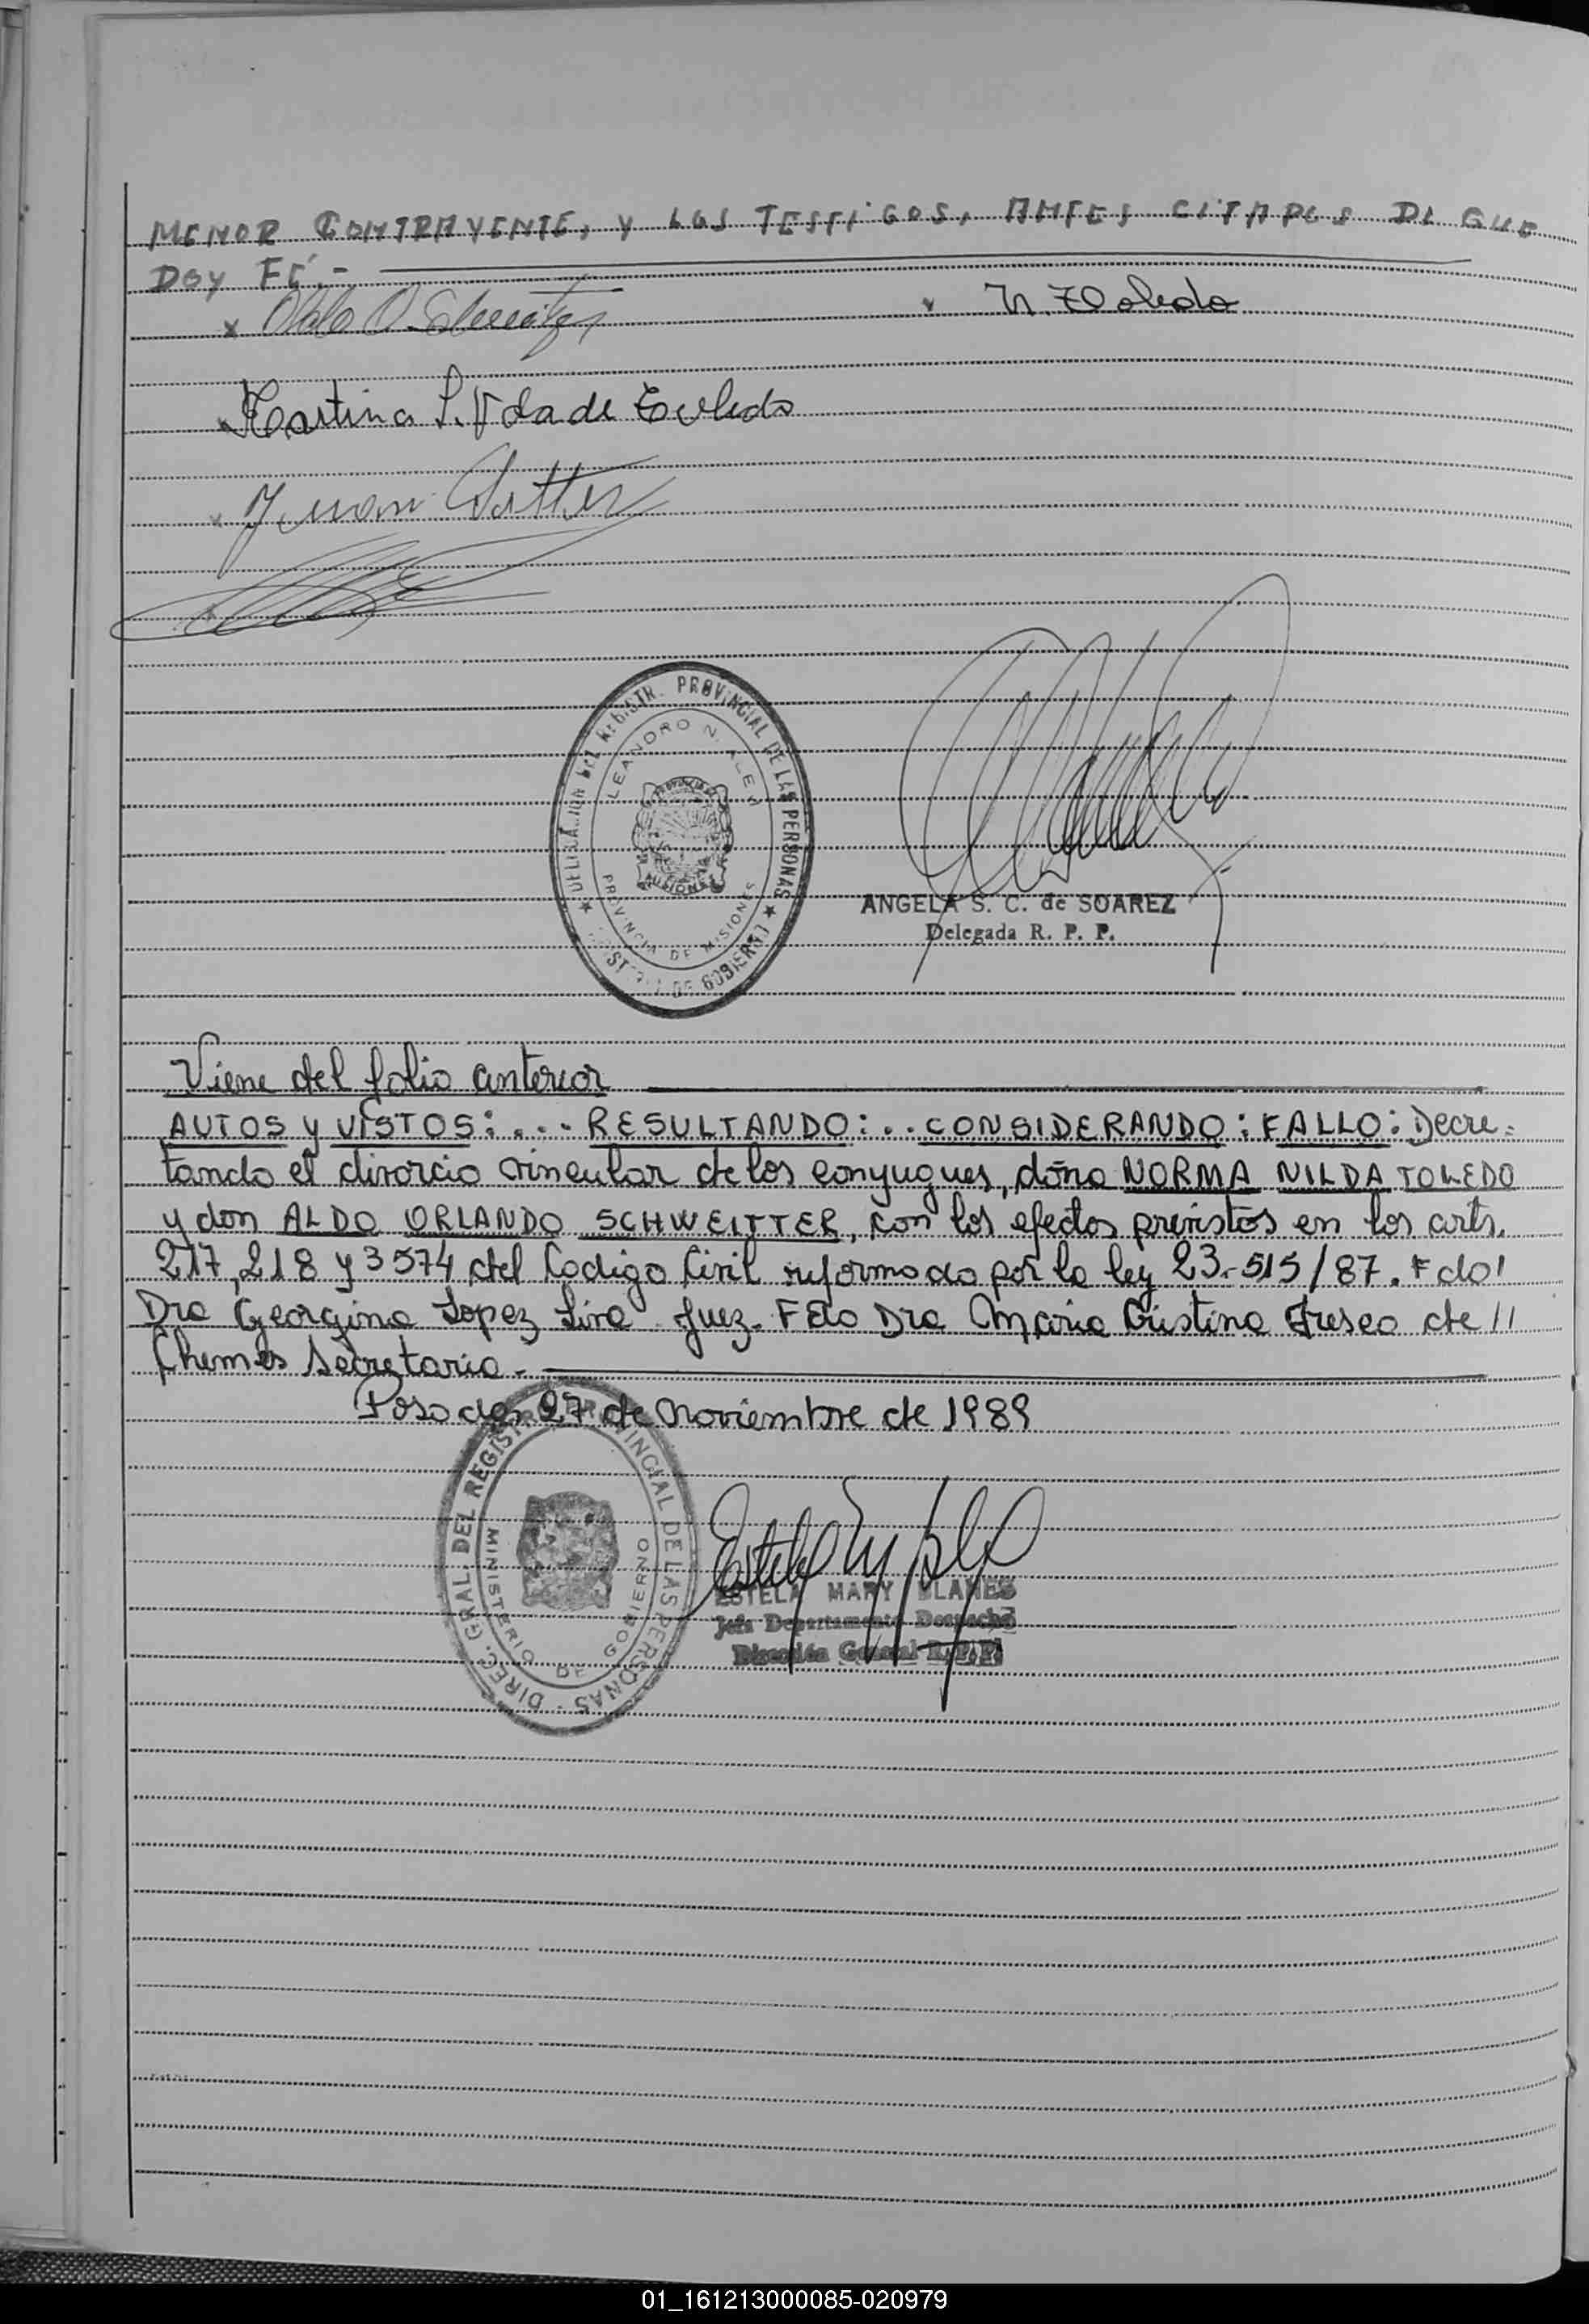 MENOR CONTRAYENTE, Y LOS TESTIGOS, ANTES CITADOS DE QUE
DOY FÉ.-
x Aldo O Schweitter
x N. Toledo
x Martina S. Vda de Toledo
x Juan
DELEGACION DEL REGISTR. PROVINCIAL DE LAS PERSONAS
LEANDRO N. ALEM
MISIONES
PROVINCIA DE MISIONES
MINISTERIO DE GOBIERNO
ANGELA S. C. de SOAREZ
Delegada R. P. P.
Viene del folio anterior
AUTOS y VISTOS:... RESULTANDO:.. CONSIDERANDO: FALLO: Decre-
tando el divorcio vincular de los conyugues, doña NORMA NILDA TOLEDO
y don ALDO ORLANDO SCHWEITTER, con los efectos previstos en los arts.
217, 218 y 3574 del Codigo Civil reformado por la ley 23.515/87. Fdo!
Dra Georgina Lopez Lira Juez. Fdo Dra Maria Cristina de //
Chemes Secretaria.-
Posadas 27 de Noviembre de 1989
DIREC. GRAL. DEL REGISTRO PROVINCIAL DE LAS PERSONAS -
MINISTERIO DE GOBIERNO
ESTELA MARY BLANES
Jefa Departamento Despacho
Dirección General R.P.P.
01_161213000085-020979